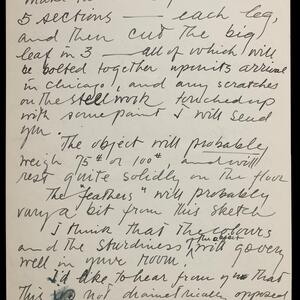 5 sections — each leg,
and then cut the big
leaf in 3 — all of which will
be bolted together upon its arrival
in Chicago, and any scratches
on the steel work touched up
with some paint I will send
you.
The object will probably
weigh 75# or 100#, and will
rest quite solidly on the floor
The "feathers" will probably
vary a bit from this sketch
I think that the colours
and the sturdiness of the object will go very
well in your room.
I'd like to hear from you that
this is not diametrically opposed